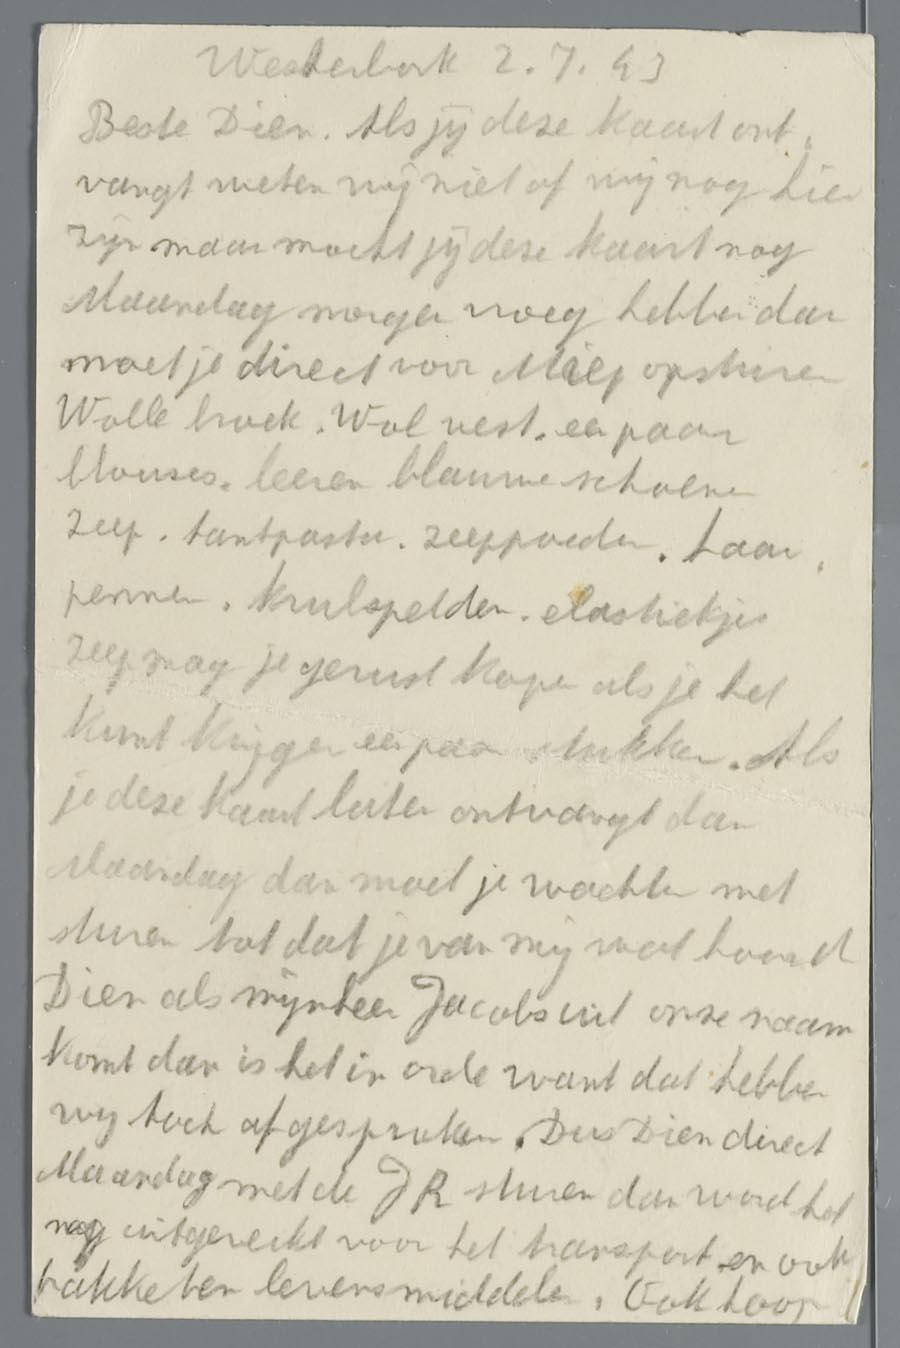 Westerbork 2.7.43
Beste Dien. Als jij deze kaart ont,
vangt weten wij niet of wij nog hier
zijn maar mocht jij deze kaart nog
Maandag morgen vroeg hebben dan
moet je direct voor Miep opsturen
Wolle broek. Wol vest. een paar
blouses. leeren blauwe schoenen
zeep. tantpasta. zeeppoeder. haar,
pennen. krulspelden. elastiekjes
zeep mag je gerust kopen als je het
kunt krijgen een paar stukken. Als
je deze kaart later ontvangt dan
Maandag dan moet je wachten met
sturen tot dat je van mij wat hoord
Dien als mijnheer Jacobs uit onze naam
komt dan is het in orde want dat hebben
wij toch afgesproken. Dus Dien direct
Maandag met de JR sturen dan word het
nog uitgereikt voor het transport en ook
pakketen levensmiddelen. Ook hoop